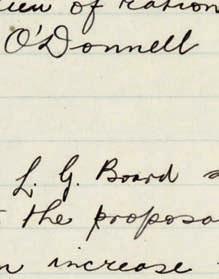 view of ration
O'Donnell
L. G. Board
the proposa
increase